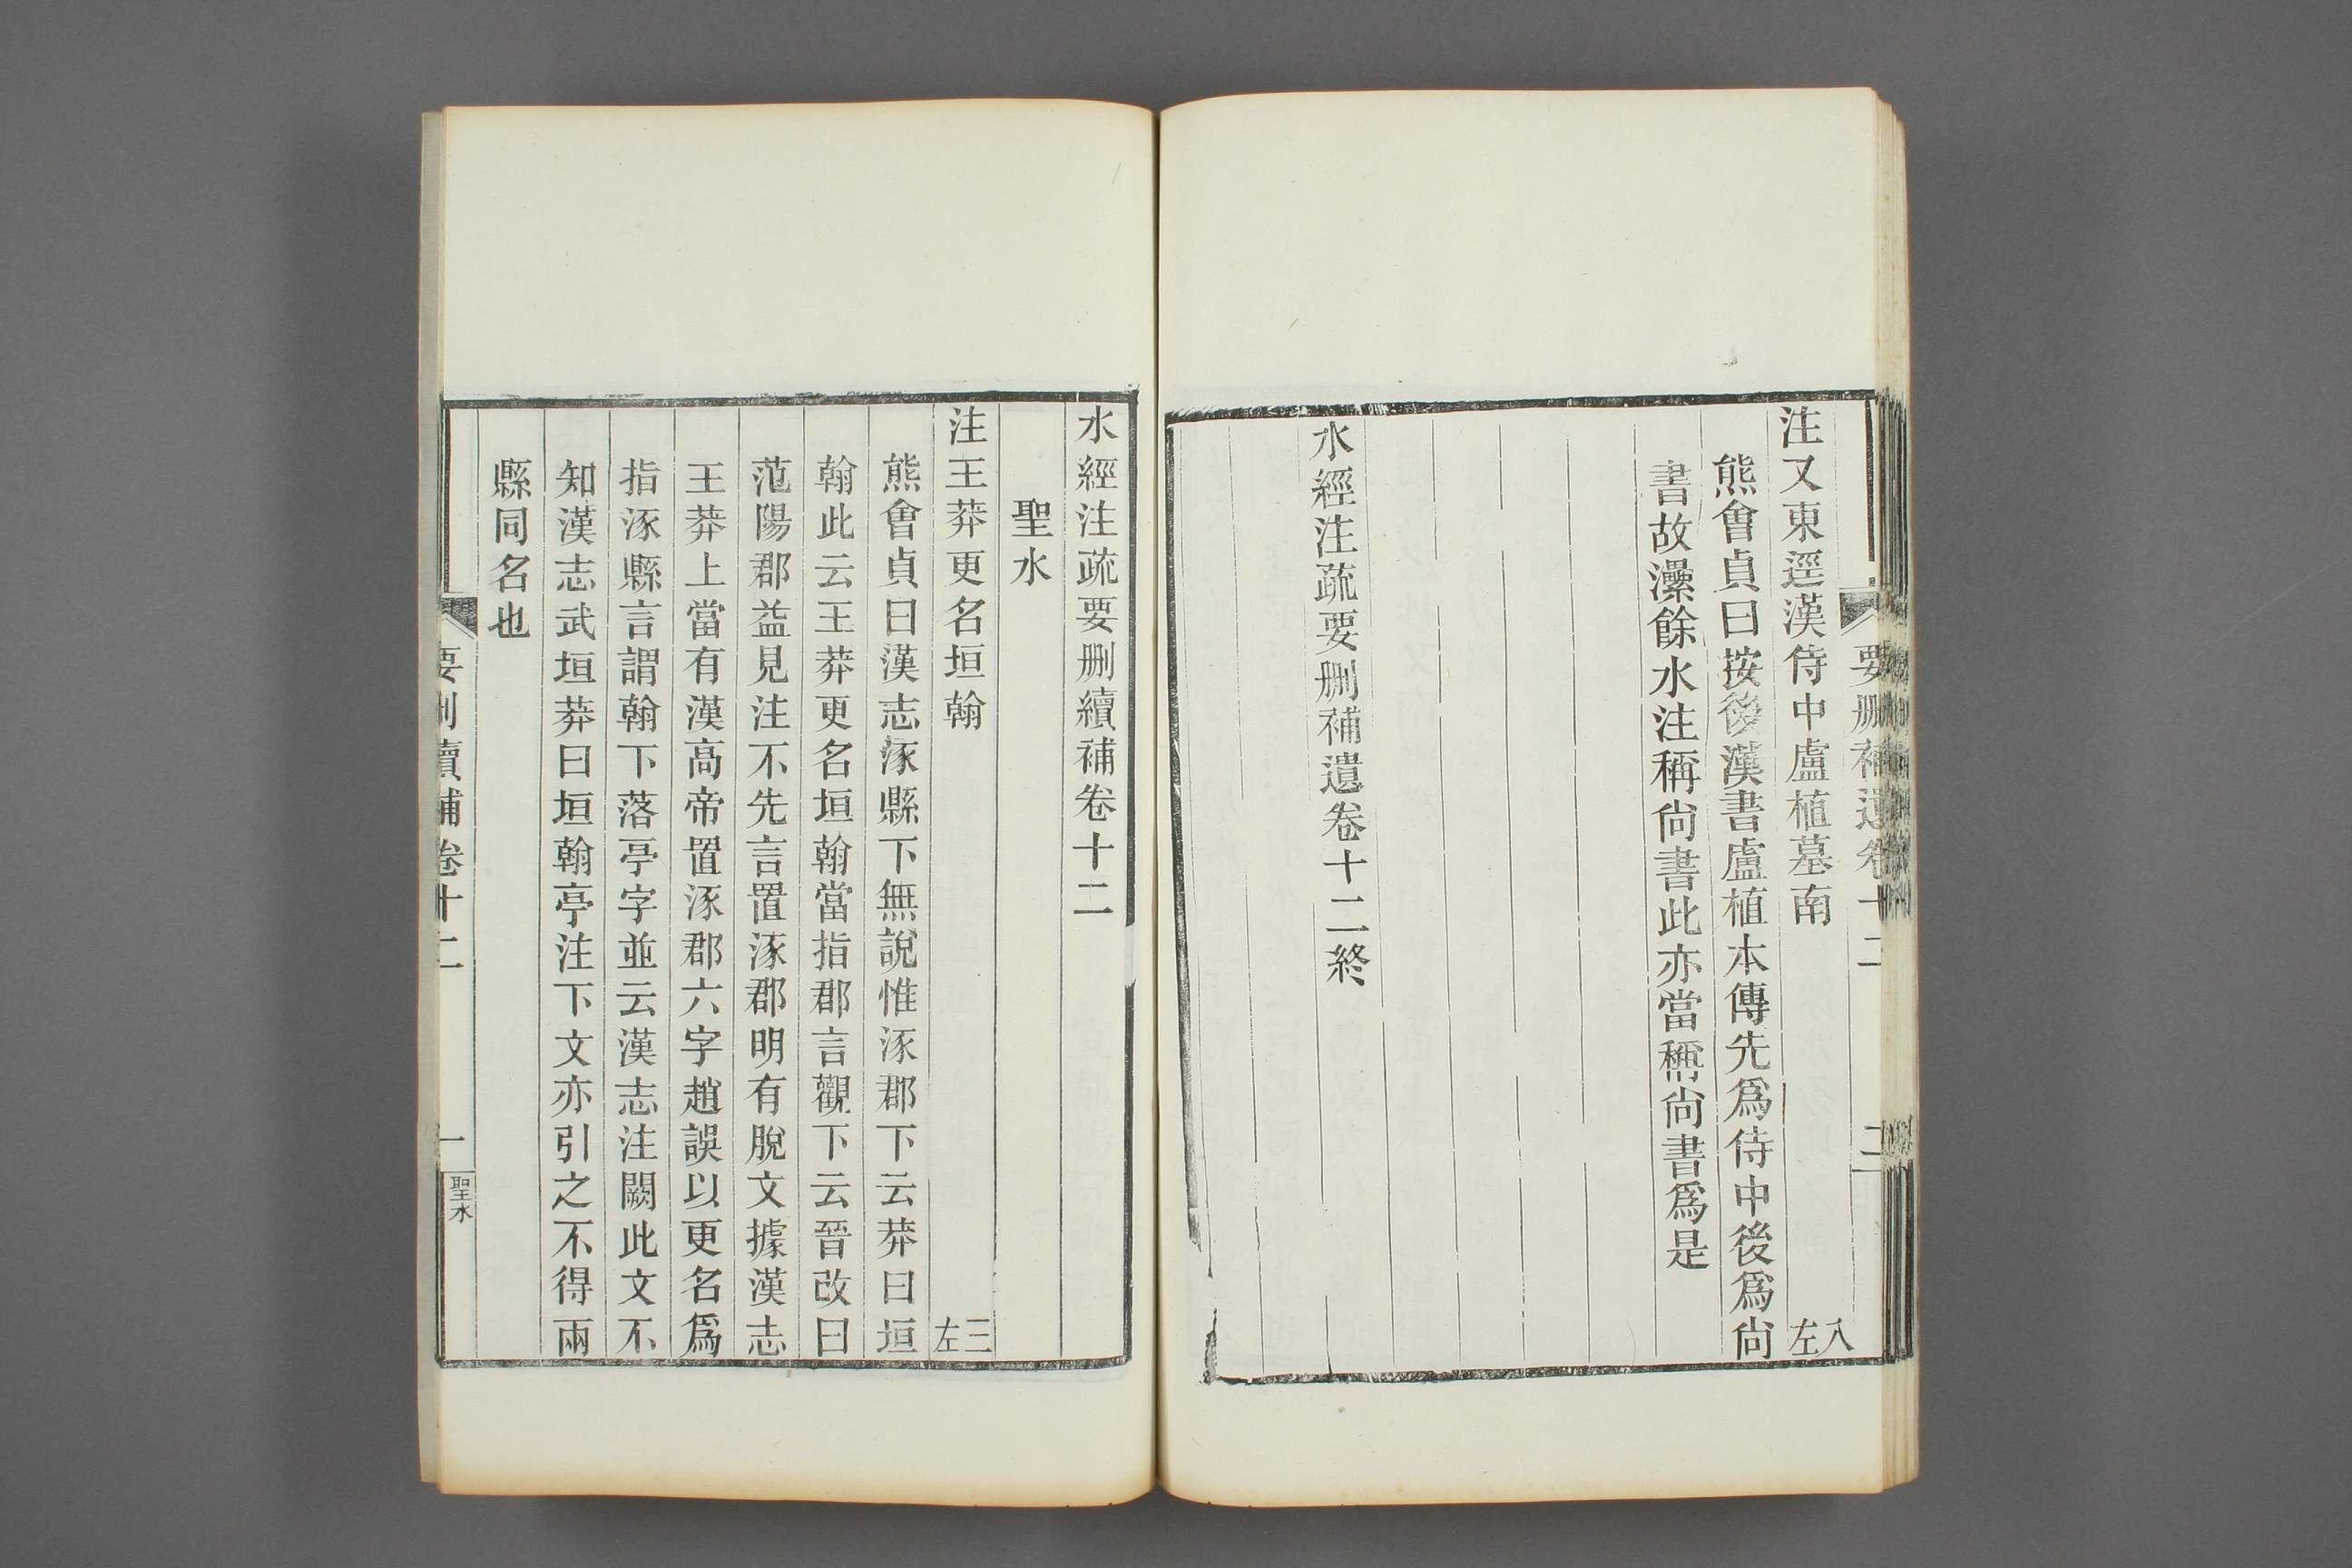 要刪補遺卷十二 二
注又東逕漢侍中盧植墓南 八左
熊會貞曰按後漢書盧植本傳先爲侍中後爲尙
書故灅餘水注稱尙書此亦當稱尙書爲是
水經注疏要刪補遺卷十二終
水經注疏要刪續補卷十二
聖水
注王莽更名垣翰 三左
熊會貞曰漢志涿縣下無說惟涿郡下云莽曰垣
翰此云王莽更名垣翰當指郡言觀下云晉改曰
范陽郡益見注不先言置涿郡明有脫文據漢志
王莽上當有漢高帝置涿郡六字趙誤以更名爲
指涿縣言謂翰下落亭字並云漢志注闕此文不
知漢志武垣莽曰垣翰亭注下文亦引之不得兩
縣同名也
要刪續補卷十二 一 聖水